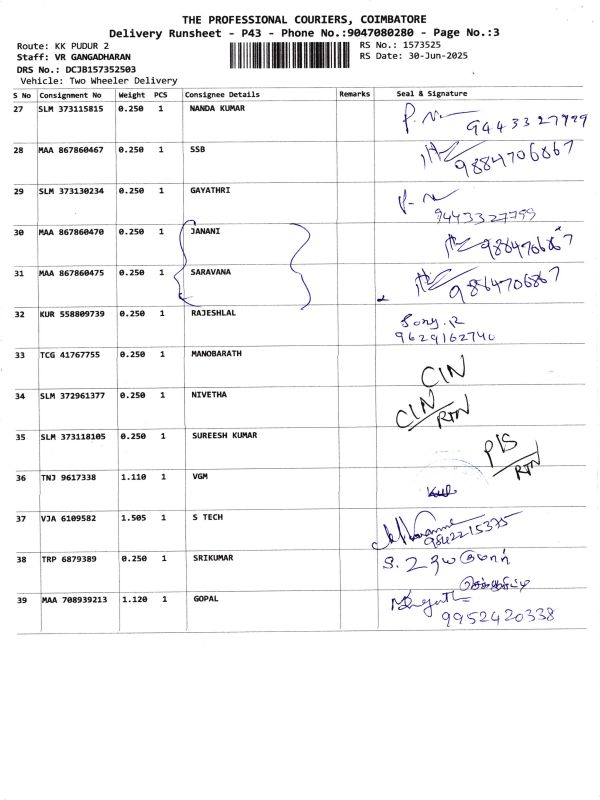 THE PROFESSIONAL COURIERS, COIMBATORE
Delivery Runsheet - P43 - Phone No.:9047080280 - Page No.:3
Route: KK PUDUR 2
RS No.: 1573525
Staff: VR GANGADHARAN
RS Date: 30-Jun-2025
DRS No.: DCJB157352503
Vehicle: Two Wheeler Delivery
S No Consignment No Weight PCS Consignee Details Remarks Seal & Signature
27 SLM 373115815 0.250 1 NANDA KUMAR
9443327799
28 MAA 867860467 0.250 1 SSB 9884706867
29 SLM 373130234 0.250 1 GAYATHRI
9443327799
30 MAA 867860470 0.250 1 JANANI 9884706867
31 MAA 867860475 0.250 1 SARAVANA 9884706867
32 KUR 558809739 0.250 1 RAJESHLAL
9629162740
33 TCG 41767755 0.250 1 MANOBARATH CIN
34 SLM 372961377 0.250 1 NIVETHA CIN/RTN
35 SLM 373118105 0.250 1 SUREESH KUMAR P/S/RTN
36 TNJ 9617338 1.110 1 VGM
37 VJA 6109582 1.505 1 S TECH
9842215375
38 TRP 6879389 0.250 1 SRIKUMAR
39 MAA 708939213 1.120 1 GOPAL
9952420338